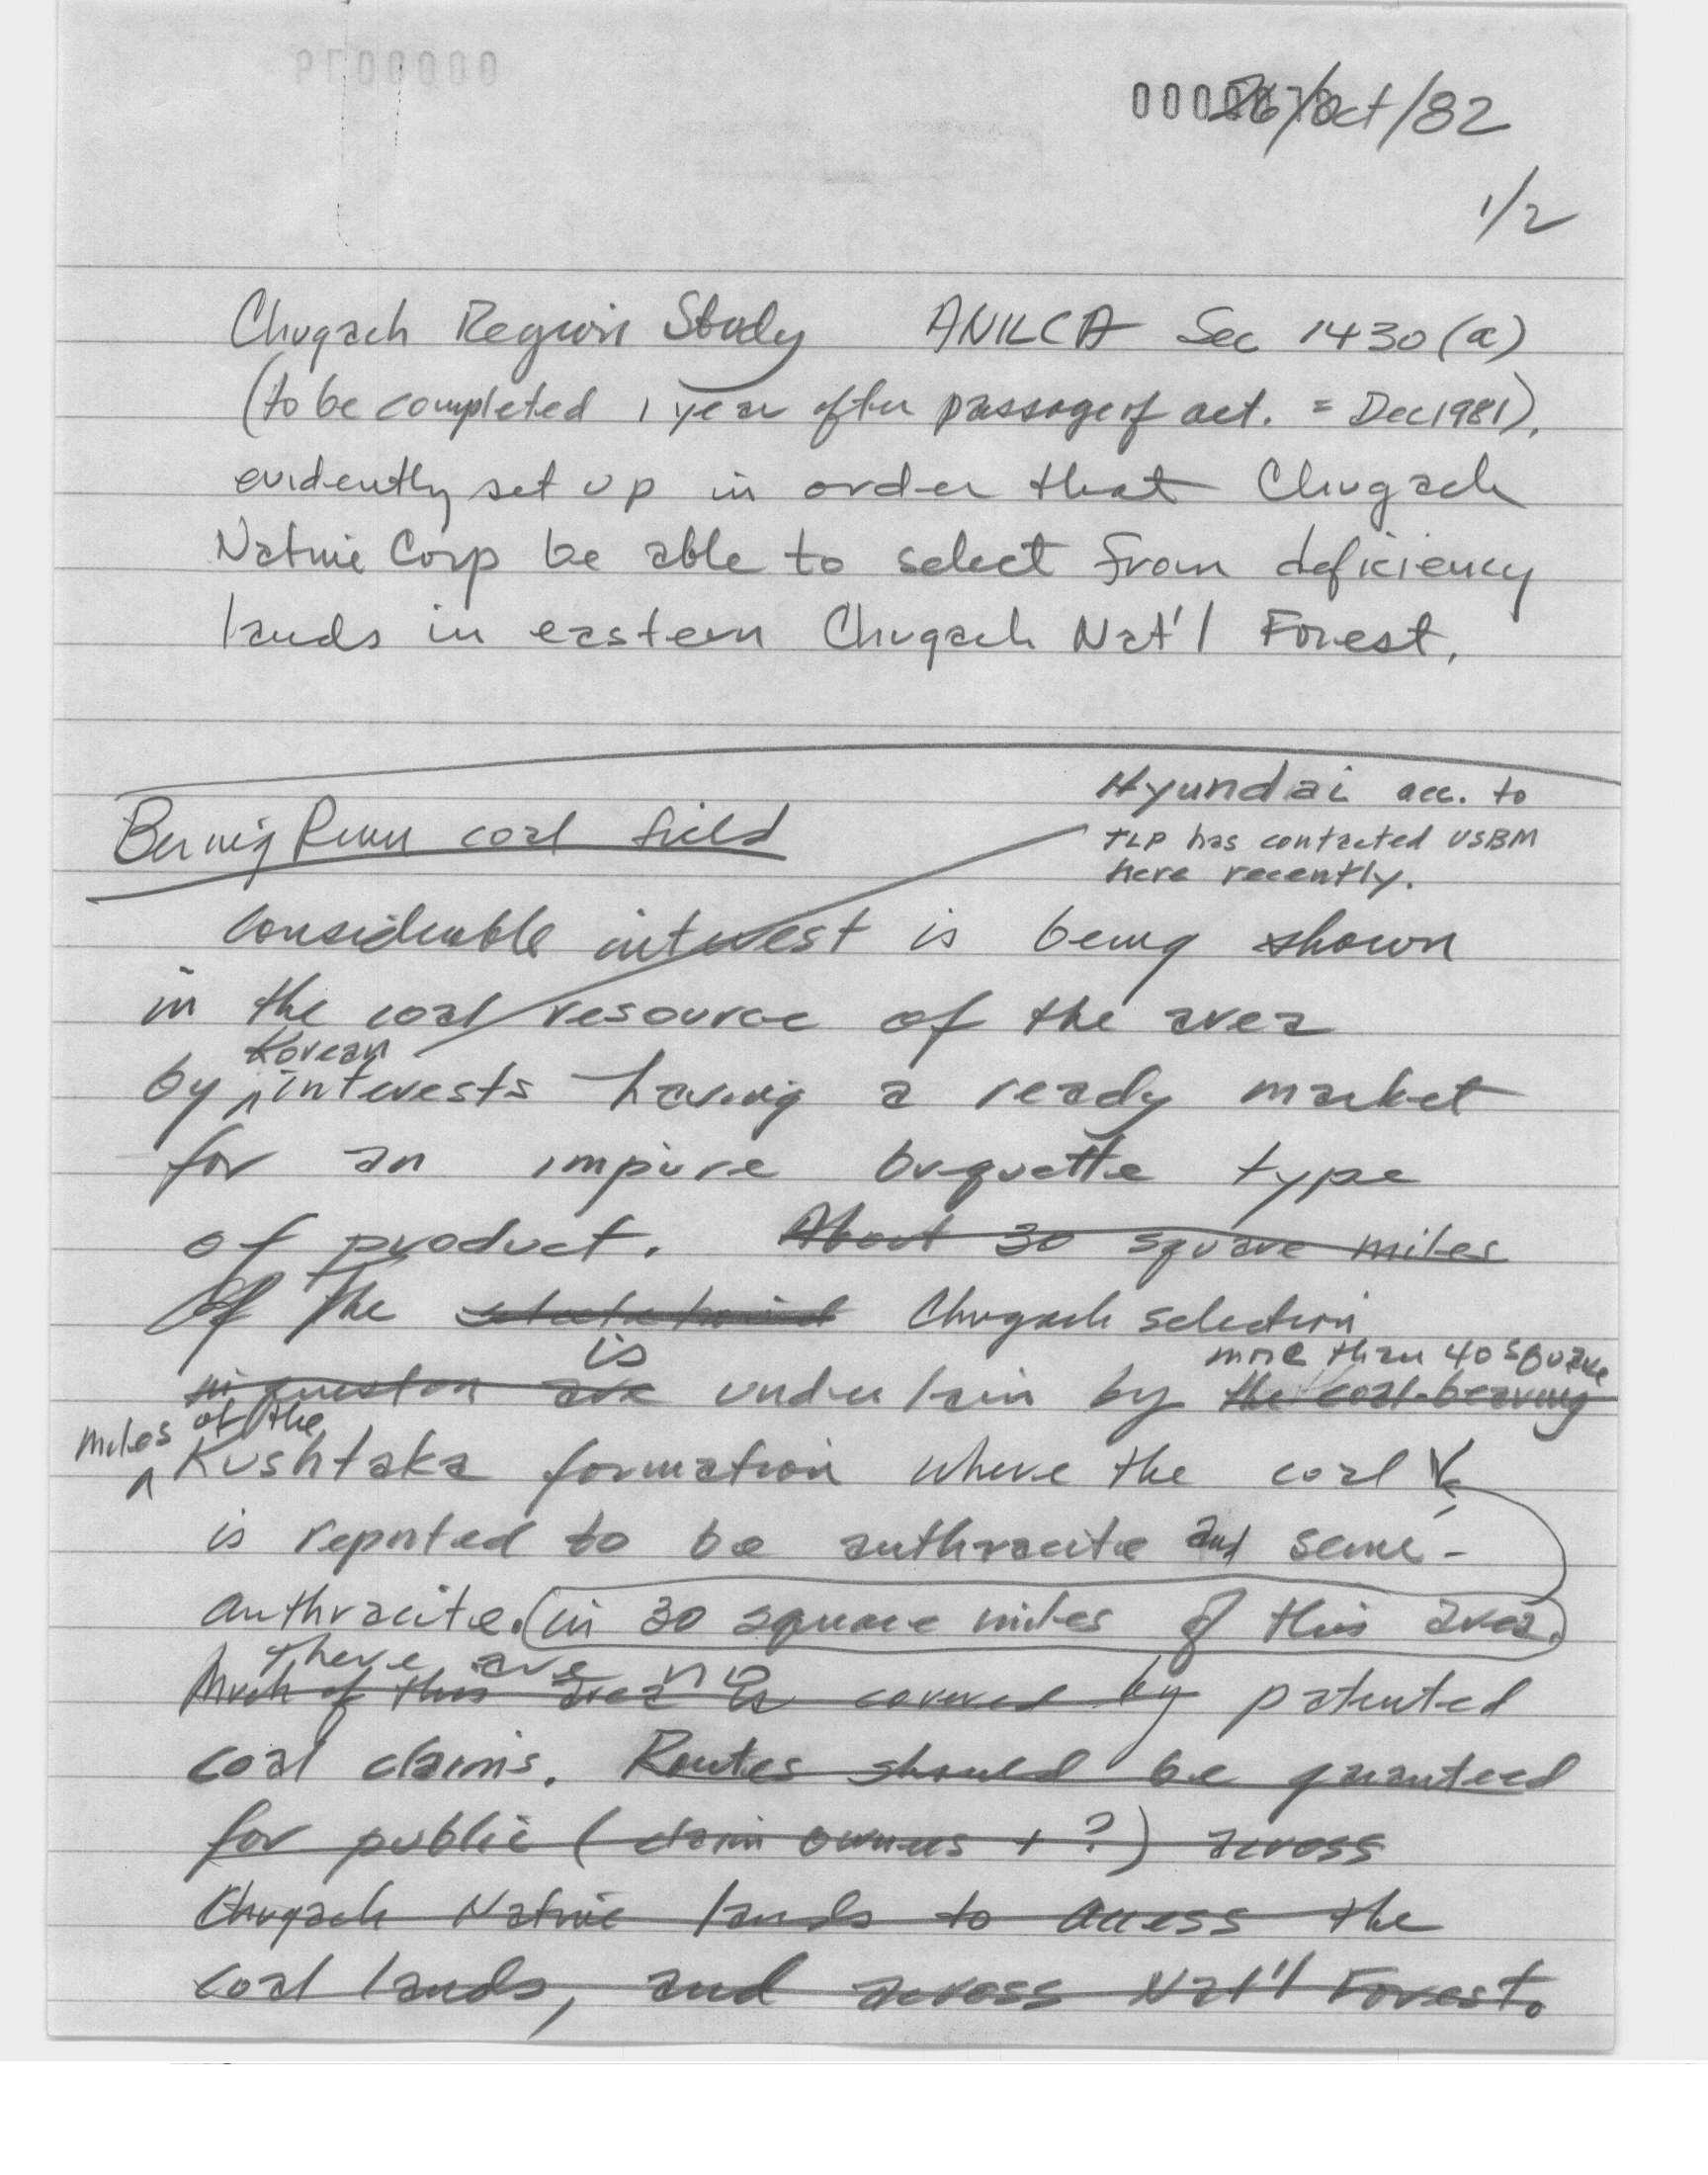 26/Oct/82
1/2
Chugach Region Study ANILCA Sec 1430(a)
(to be completed 1 year after passage of act. = Dec 1981).
evidently set up in order that Chugach
Native Corp be able to select from deficiency
lands in eastern Chugach Nat'l Forest.
Hyundai acc. to
TLP has contacted USBM
here recently.
Bering River coal field
Considerable interest is being shown
in the coal resource of the area
Korean
by ^ interests having a ready market
for an impure briquette type
of product. About 30 square miles
Of the Chugach selection
is more than 40 square
in question are underlain by the coal-bearing
miles of the
^ Kushtaka formation where the coal
is reported to be anthracite and semi-
anthracite. (in 30 square miles of this area.)
There are no
Much of this area is covered by patented
coal claims. Routes should be guaranteed
for public (claim owners + ?) across
Chugach Native lands to access the
coal lands, and across Nat'l Forest.